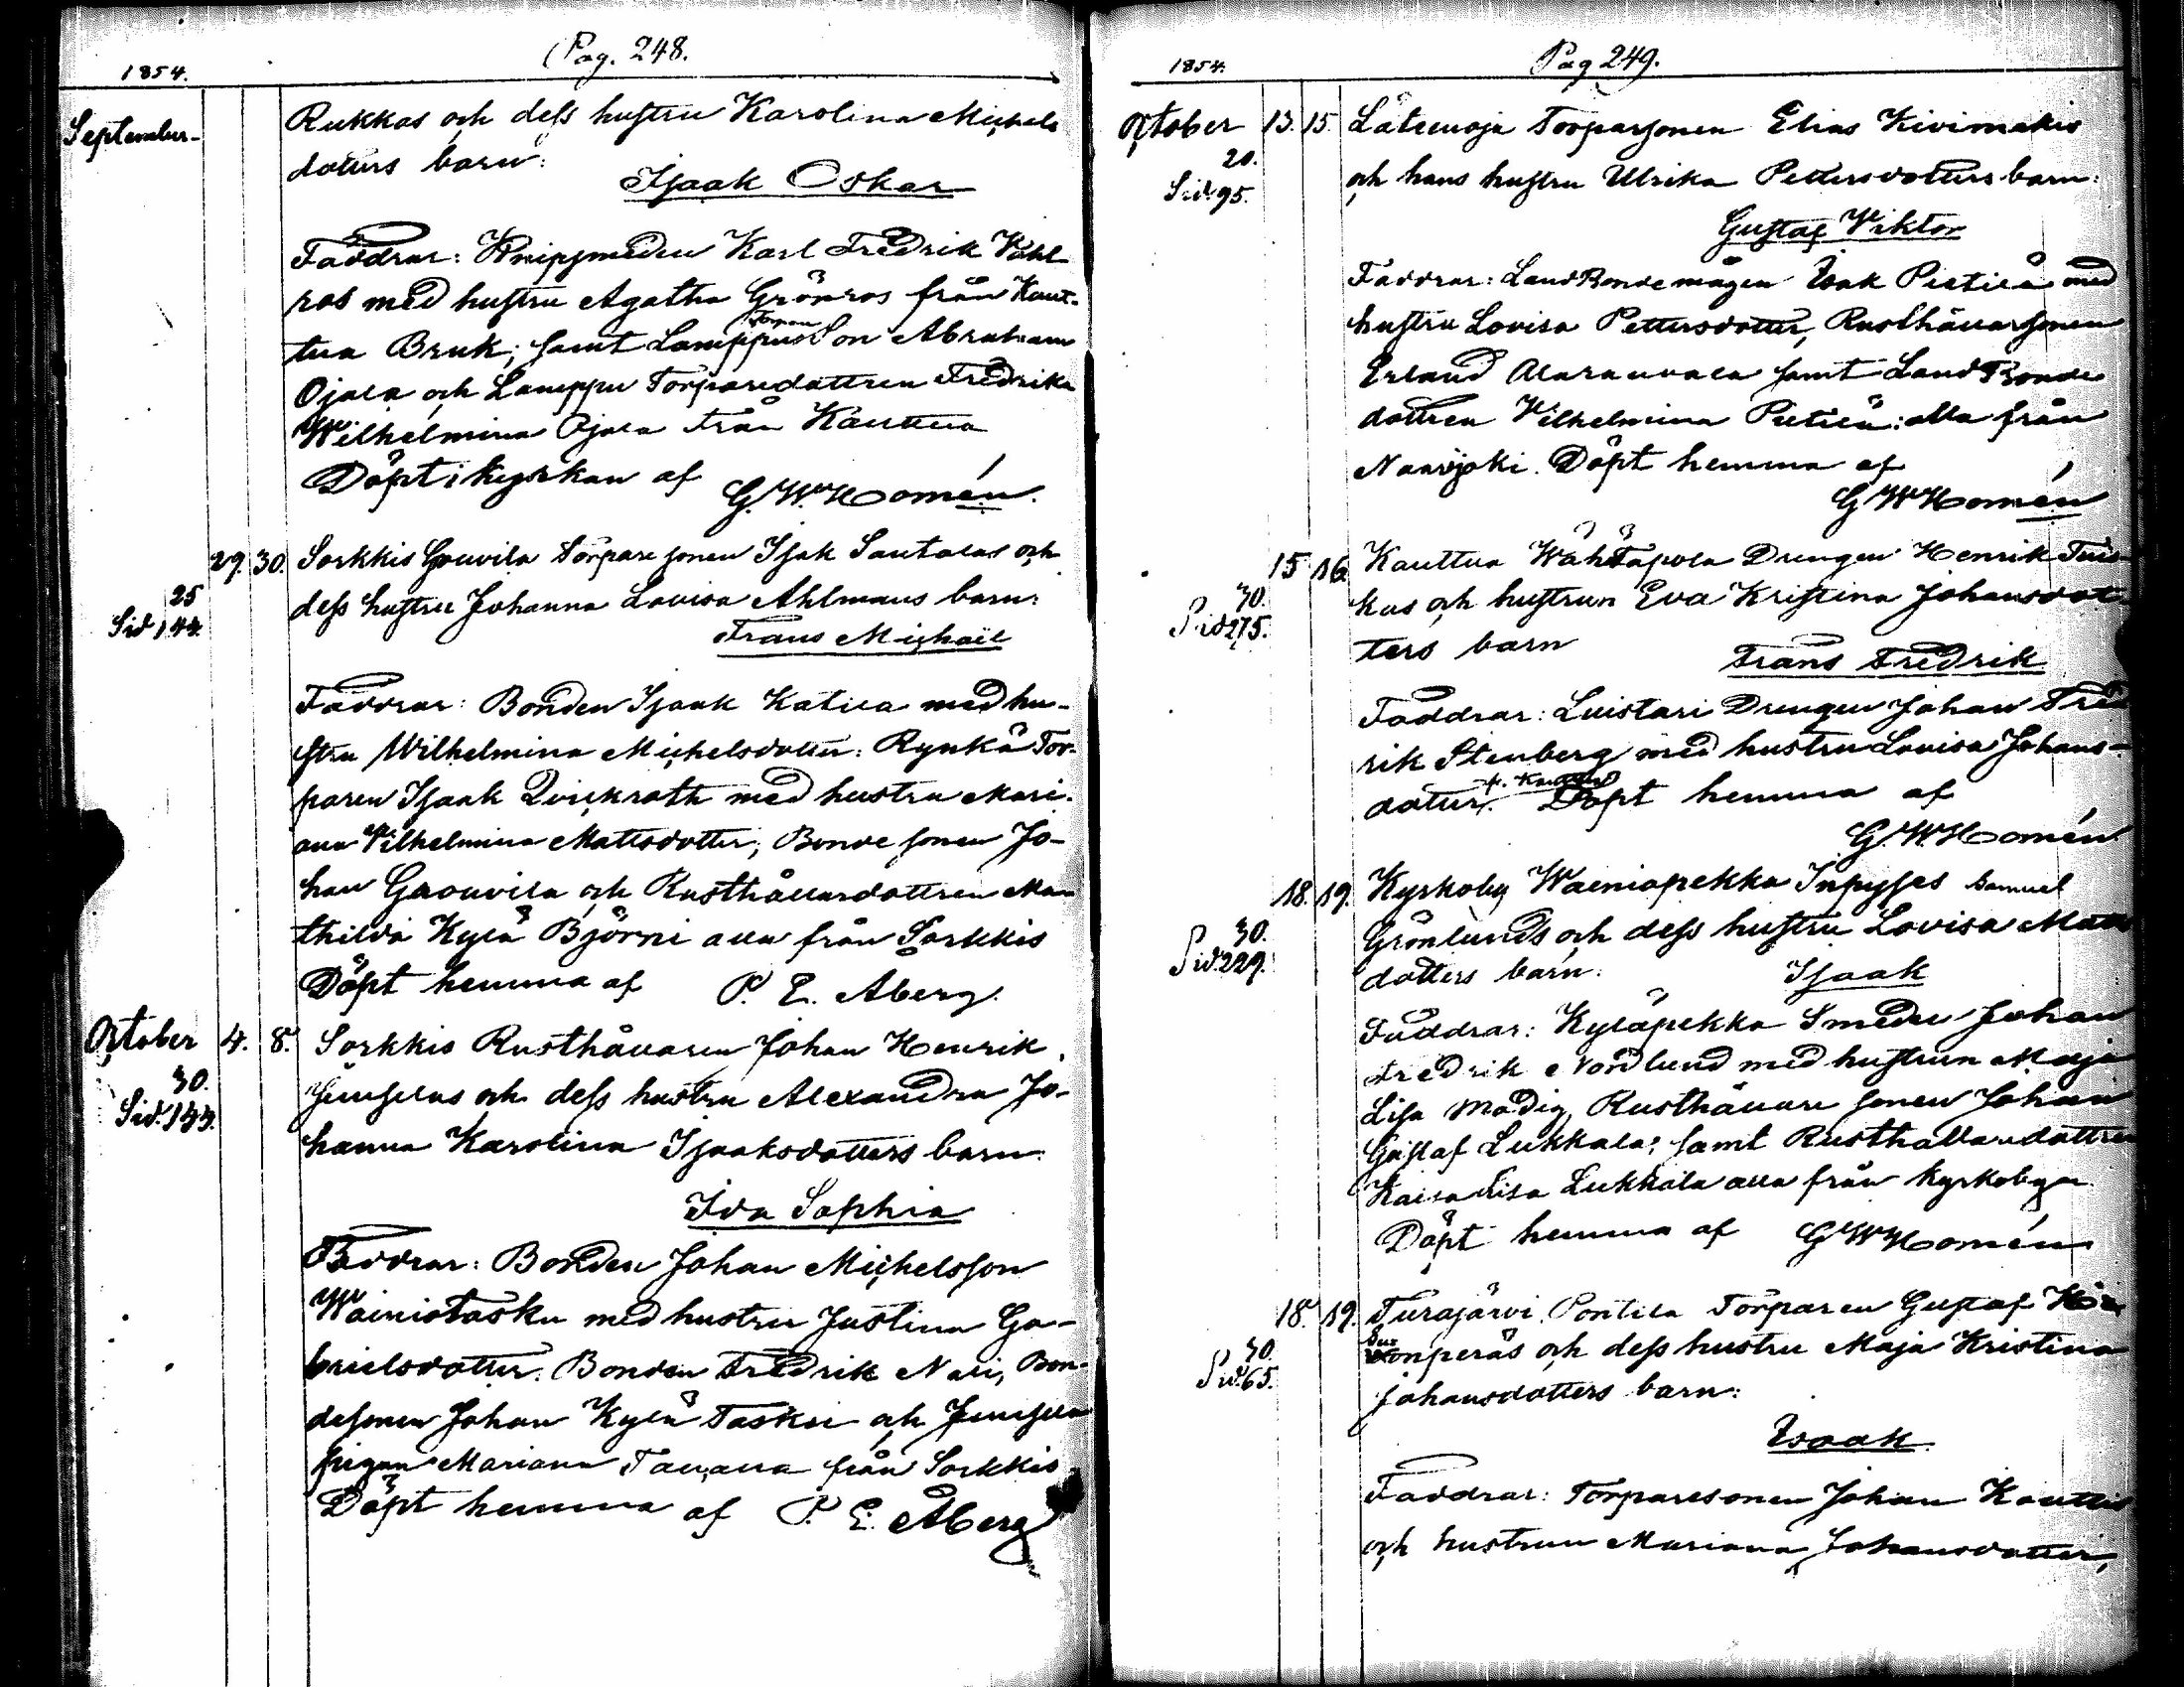 1854.
Pag. 248.
September.
Rukkas och dess hustru Karolina Michels
dotters barn:
Isaak Oskar
Faddrar: Knipsmeden Karl Fredrik Wahl-
ros med hustru Agatha Grönros från Kaut-
tua Bruk; samt Lamppus Torpare Son Abraham
Ojala och Lamppu Torparedottren Fredrika
Wilhelmina Ojala från Kauttua
Döpt i kyrkan af
G. W. Homén.
29. 30. Sorkkis Gouvila Torpare sonen Isak Santalas och
25
Sid. 144.
dess hustru Johanna Lovisa Ahlmans barn:
Frans Michaël
Faddrar: Bonden Isaak Katila med hu-
stru Wilhelmina Michelsdotter: Rynkä Tor-
paren Isaak Qvickroth med hustru Mari-
ana Vilhelmina Mattsdotter; Bonde sonen Jo-
han Gaouvila och Rusthållardottren Ma
thilda Kylä Björni alla från Sorkkis
Döpt hemma af P. E. Aberg.
October 4. 8. Sorkkis Rusthållaren Johan Henrik
30.
Sid. 144.
Junsilas och dess hustru Alexandra Jo-
hanna Karolina Isaaksdotters barn:
Ida Sophia
Faddrar: Bonden Johan Michelsson
Wäiniotasku med hustru Justina Ga-
brielsdotter. Bonden Fredrik Nari, Bon-
desonen Johan Kylä Tasku och Junsila
pigan Mariana från Sorkkis
Döpt hemma af P. E. Åberg
1854.
Pag 249.
October 13. 15. Lätenoja Torparsonen Elias Kivimäkis
20.
Sid 95.
och hans hustru Ulrika Pettersdotters barn:
Gustaf Viktor
Faddrar: Landbondemågen Isak Pietilä med
hustru Lovisa Pettersdotter, Rusthållarsonen
Erland samt Landbonde
dottren Vilhelmina Pietilä: alla från
Naarjoki. Döpt hemma af
G W Homén
15 16. Kauttua Wähätapola Drengen Henrik Tuis-
30.
Sid 275.
kus och hustrun Eva Kristina Johansdot-
ters barn
Frans Fredrik
Faddrar: Luistari Drengen Johan Fred
rik Stenberg med hustru Lovisa Johans-
dotter. fr. Kauttua Döpt hemma af
G. W. Homén
18. 19. Kyrkoby Wäeniopekka Inhyses Samuel
30.
Sid. 229.
Grönlunds och dess hustru Lovisa Matts
dotters barn: Isaak
Faddrar: Kyläpekka Smeden Johan
Fredrik Nordlund med hustrun Maja
Lisa Modig, Rusthållare sonen Johan
Gustaf Lukkala; samt Rusthållaredottren
Kaisa Lisa Lukkala alla från Kyrkobyn.
Döpt hemma af G W Homén
18. 19. Turajärvi Pontila Torparen Gustaf
30.
Sid. 65.
och dess hustru Maja Kristina
Johansdotters barn:
Isaak.
Faddrar: Torparesonen Johan Kouttis
och hustrun Mariana Johansdotter,